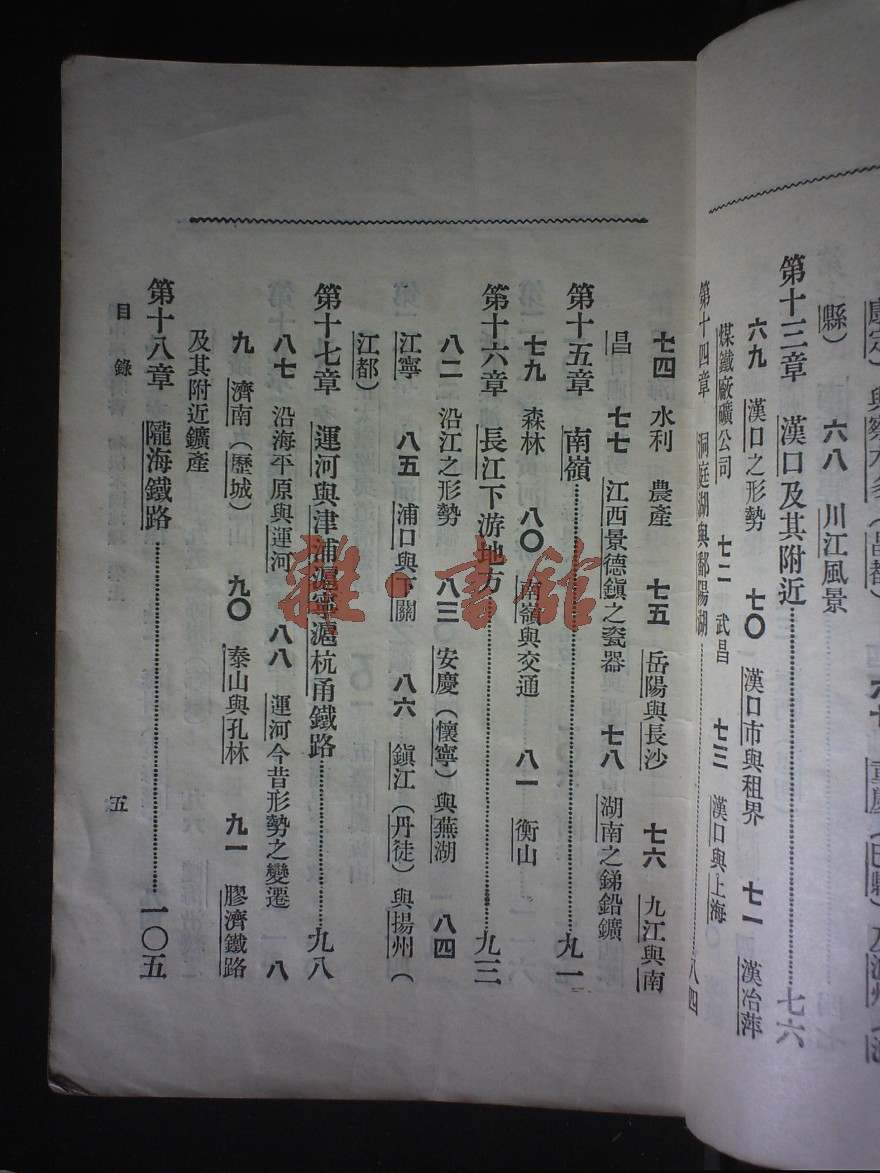 縣）　六八　川江風景
第十三章　漢口及其附近……七六
六九　漢口之形勢　七〇　漢口市與租界　七一　漢冶萍
煤鐵廠礦公司　七二　武昌　七三　漢口與上海
第十四章　洞庭湖與鄱陽湖……八四
七四　水利　農產　七五　岳陽與長沙　七六　九江與南
昌　七七　江西景德鎮之瓷器　七八　湖南之銻鉛鑛
第十五章　南嶺……九一
七九　森林　八〇　南嶺與交通　八一　衡山
第十六章　長江下游地方……九三
八二　沿江之形勢　八三　安慶（懷寧）與蕪湖　八四
江寧　八五　浦口與下關　八六　鎮江（丹徒）與揚州（
江都）
第十七章　運河與津浦滬寧滬杭甬鐵路……九八
八七　沿海平原與運河　八八　運河今昔形勢之變遷　八
九　濟南（歷城）　九〇　泰山與孔林　九一　膠濟鐵路
及其附近鑛產
第十八章　隴海鐵路……一〇五
目錄　五
雜·書館